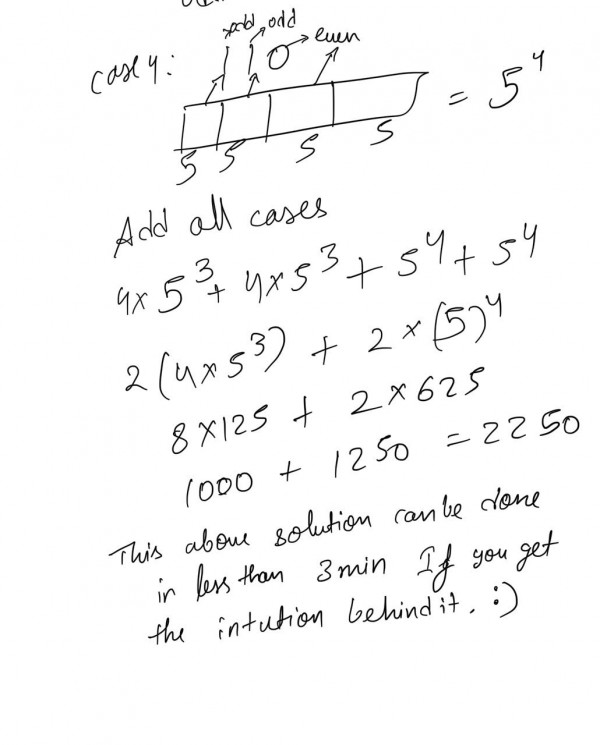 odd, odd
even
case 4:
= 5^4
5 5 5 5
Add all cases
4x 5^3 + 4x5^3 + 5^4 + 5^4
2(4x5^3) + 2x(5)^4
8x125 + 2x625
1000 + 1250 = 2250
This above solution can be done
in less than 3 min If you get
the intution behind it. :)